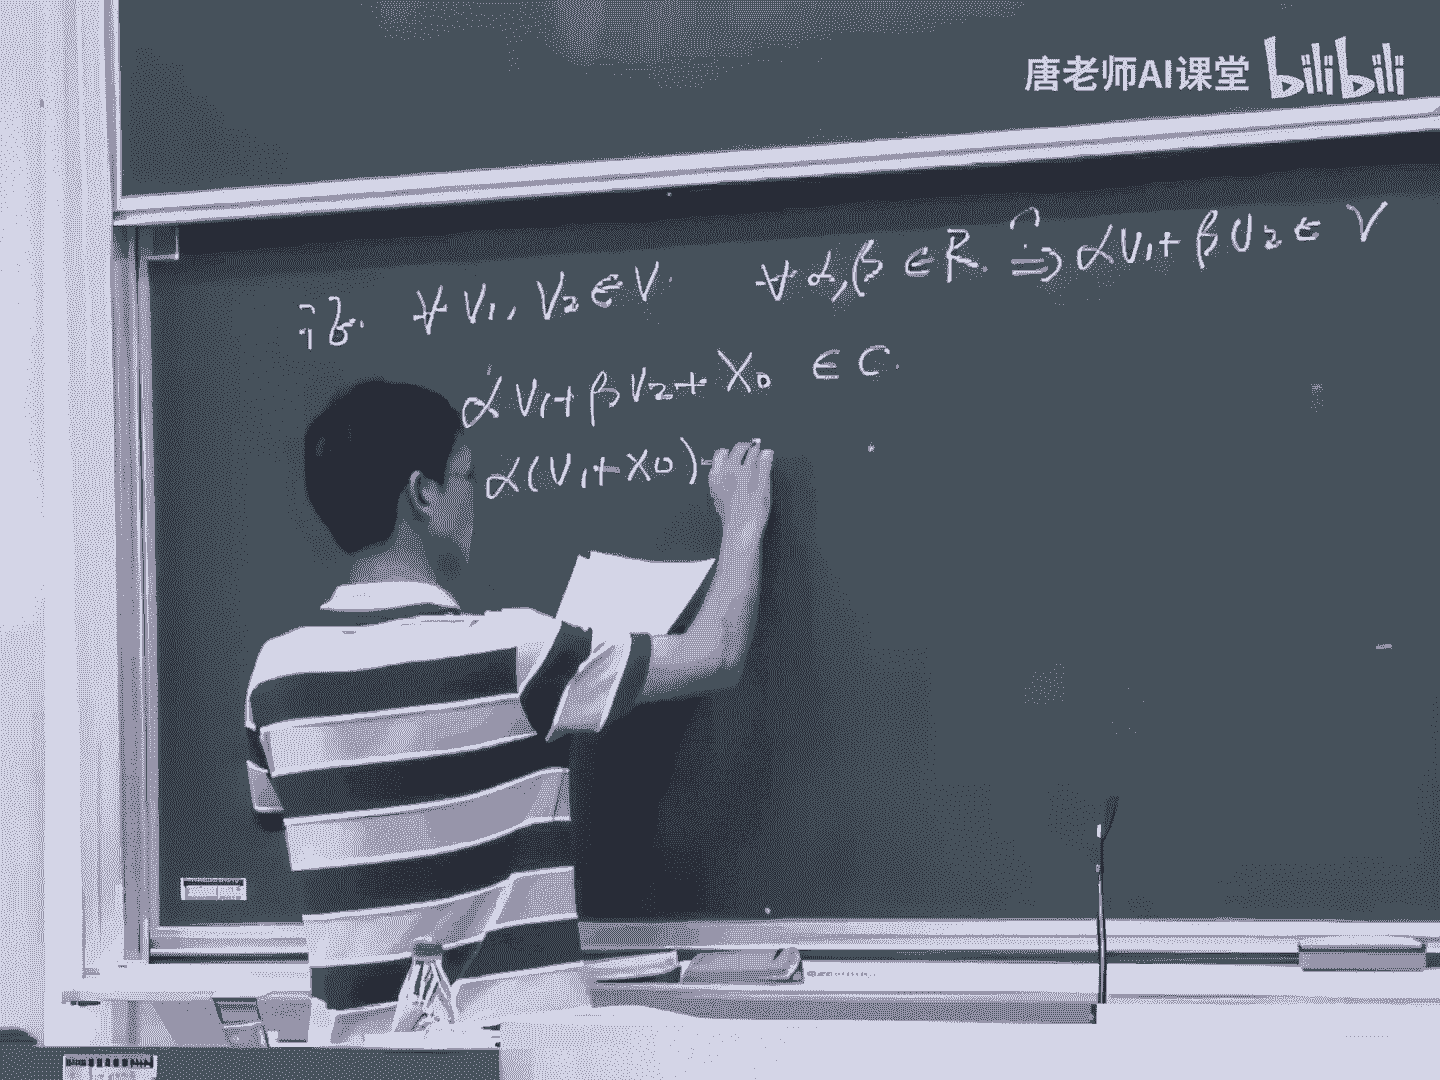 唐老师AI课堂 bilibili
证. ∀ V₁, V₂ ∈ V. ∀ α, β ∈ R. ⇒ αV₁ + βV₂ ∈ V
αV₁ + βV₂ + X₀ ∈ C.
α(V₁ + X₀) +